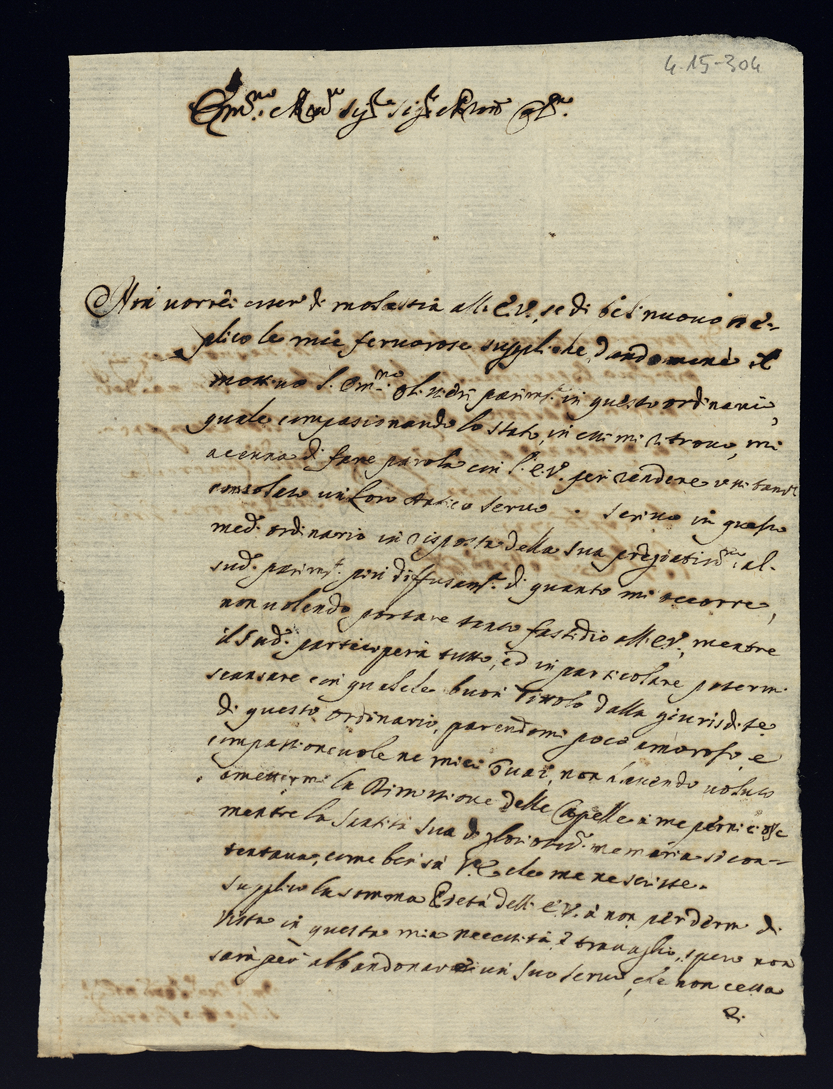 4-15-304
Em.mo e R.mo Sig.re Sig.re e Pron Col.mo
Non vorrei esser di molestia all'E.V., se di bel nuovo re-
plico le mie fervorose suppliche, dandomene il
motivo l'Em.mo Olivieri parim.te in questo ordinario,
quale compasionando lo stato, in cui mi ritrovo, mi
acenna di fare parola con l'E.V. per rendere
consolato un loro antico servo. Scrivo in questo
med.o ordinario in risposta della sua pregiatis.ma al
sud.o parim.te più diffusam.te di quanto mi occorre,
non volendo portare tanto fastidio all'E.V., mentre
il sud.o parteciperà tutto, ed in particolare potermi
scansare con qualche buon titolo dalla giurisdit.e
di questo ordinario, parendomi poco amoroso, e
compassionevole ne miei guai, non havendo voluto
la Rimissione delle Capelle a me
mentre la Santità Sua di glorios.ma memoria si con-
tentava, come ben sà V.E. che me ne scrisse.
Supplico la somma Pietà dell'E.V. à non perdermi di
vista in questa mia necessità, e travaglio, spero non
sarà per abbandonare un suo servo, che non cessa
&.